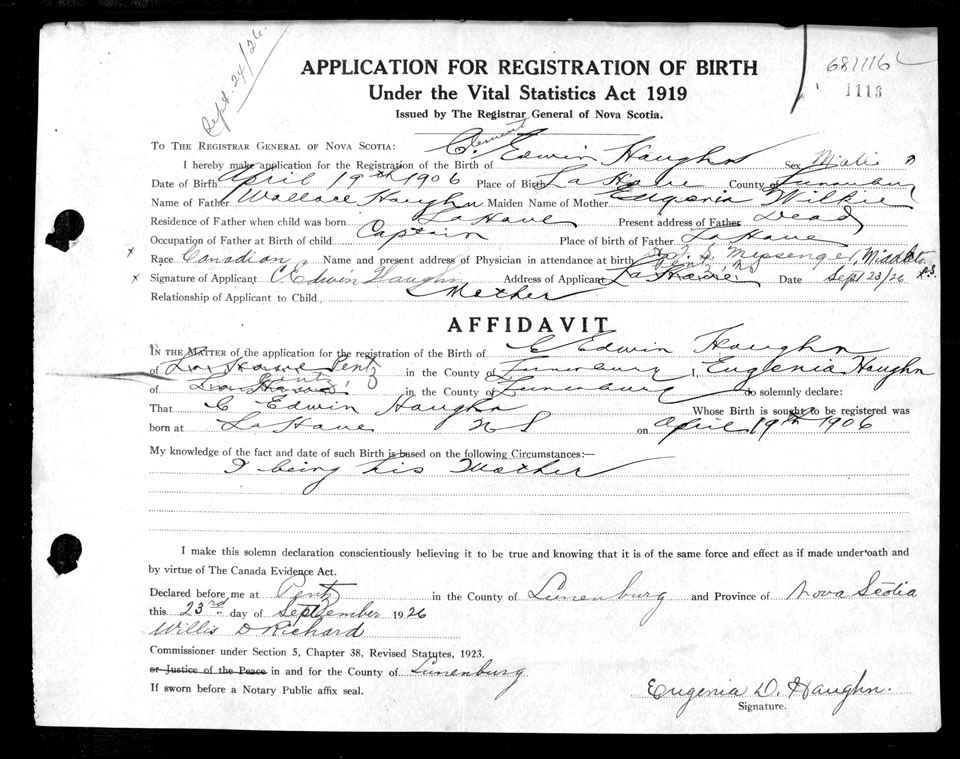 Sept. 24/26.
681116
1113
APPLICATION FOR REGISTRATION OF BIRTH
Under the Vital Statistics Act 1919
Issued by The Registrar General of Nova Scotia.
TO THE REGISTRAR GENERAL OF NOVA SCOTIA:
Clement
I hereby make application for the Registration of the Birth of C. Edwin Haughn Sex Male
Date of Birth April 19th 1906 Place of Birth LaHave County of Lunenburg
Name of Father Wallace Haughn Maiden Name of Mother Eugenia Wilkie
Residence of Father when child was born LaHave Present address of Father Dead
Occupation of Father at Birth of child Captain Place of birth of Father LaHave
x Race Canadian Name and present address of Physician in attendance at birth Messenger, Middleton N.S.
Pentz, NS
x Signature of Applicant C Edwin Haughn Address of Applicant La Have Date Sept 23/26
Relationship of Applicant to Child Mother
AFFIDAVIT
IN THE MATTER of the application for the registration of the Birth of C Edwin Haughn
of La Have Pentz in the County of Lunenburg I, Eugenia Haughn
Pentz,
of La Have in the County of Lunenburg do solemnly declare:
That C Edwin Haughn Whose Birth is sought to be registered was
born at LaHave N S on April 19th 1906
My knowledge of the fact and date of such Birth is based on the following Circumstances:—
I being his Mother
I make this solemn declaration conscientiously believing it to be true and knowing that it is of the same force and effect as if made under oath and
by virtue of The Canada Evidence Act.
Declared before me at Pentz in the County of Lunenburg and Province of Nova Scotia
this 23rd day of September 1926
Willis D Richard
Commissioner under Section 5, Chapter 38, Revised Statutes, 1923.
or Justice of the Peace in and for the County of Lunenburg
If sworn before a Notary Public affix seal.
Eugenia D. Haughn.
Signature.